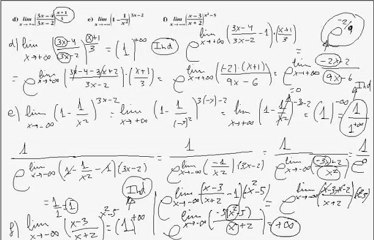 d) lim x→+∞ [(3x-4)/(3x-2)]^((x+1)/3)   e) lim x→-∞ [1-1/x²]^(3x-2)   f) lim x→-∞ [(x-3)/(x+2)]^(x²-5)
d) lim x→+∞ ((3x-4)/(3x-2))^((x+1)/3) = (1)^(+∞) Ind   e^(lim x→+∞ ((3x-4)/(3x-2) -1)·((x+1)/3))   e^(-2/9)
= e^(lim x→+∞ ((3x-4-3x+2)/(3x-2))·((x+1)/3)) = e^(lim x→+∞ ((-2)·(x+1))/(9x-6)) = e^(lim x→+∞ (-2x-2)/(9x-6))
e) lim x→-∞ (1-1/x²)^(3x-2) = lim x→+∞ (1-1/(-x)²)^(3(-x)-2) = lim x→+∞ (1-1/x²)^(-3x-2) = (1)^(-∞) = 1/1^(+∞) Ind
1/e^(lim x→-∞ (1-1/x²-1)(3x-2)) = 1/e^(lim x→-∞ (-1/x²)(3x-2)) = 1/e^(lim x→-∞ (-3x+2)/x²) = 1/e^0
= 1/1 = 1
f) lim x→-∞ ((x-3)/(x+2))^(x²-5) = (1)^(+∞) Ind
e^(lim x→-∞ ((x-3)/(x+2) -1)(x²-5)) = e^(lim x→-∞ ((x-3-x-2)/(x+2))(x²-5))
= e^(lim x→-∞ (-5(x²-5))/(x+2)) = +∞